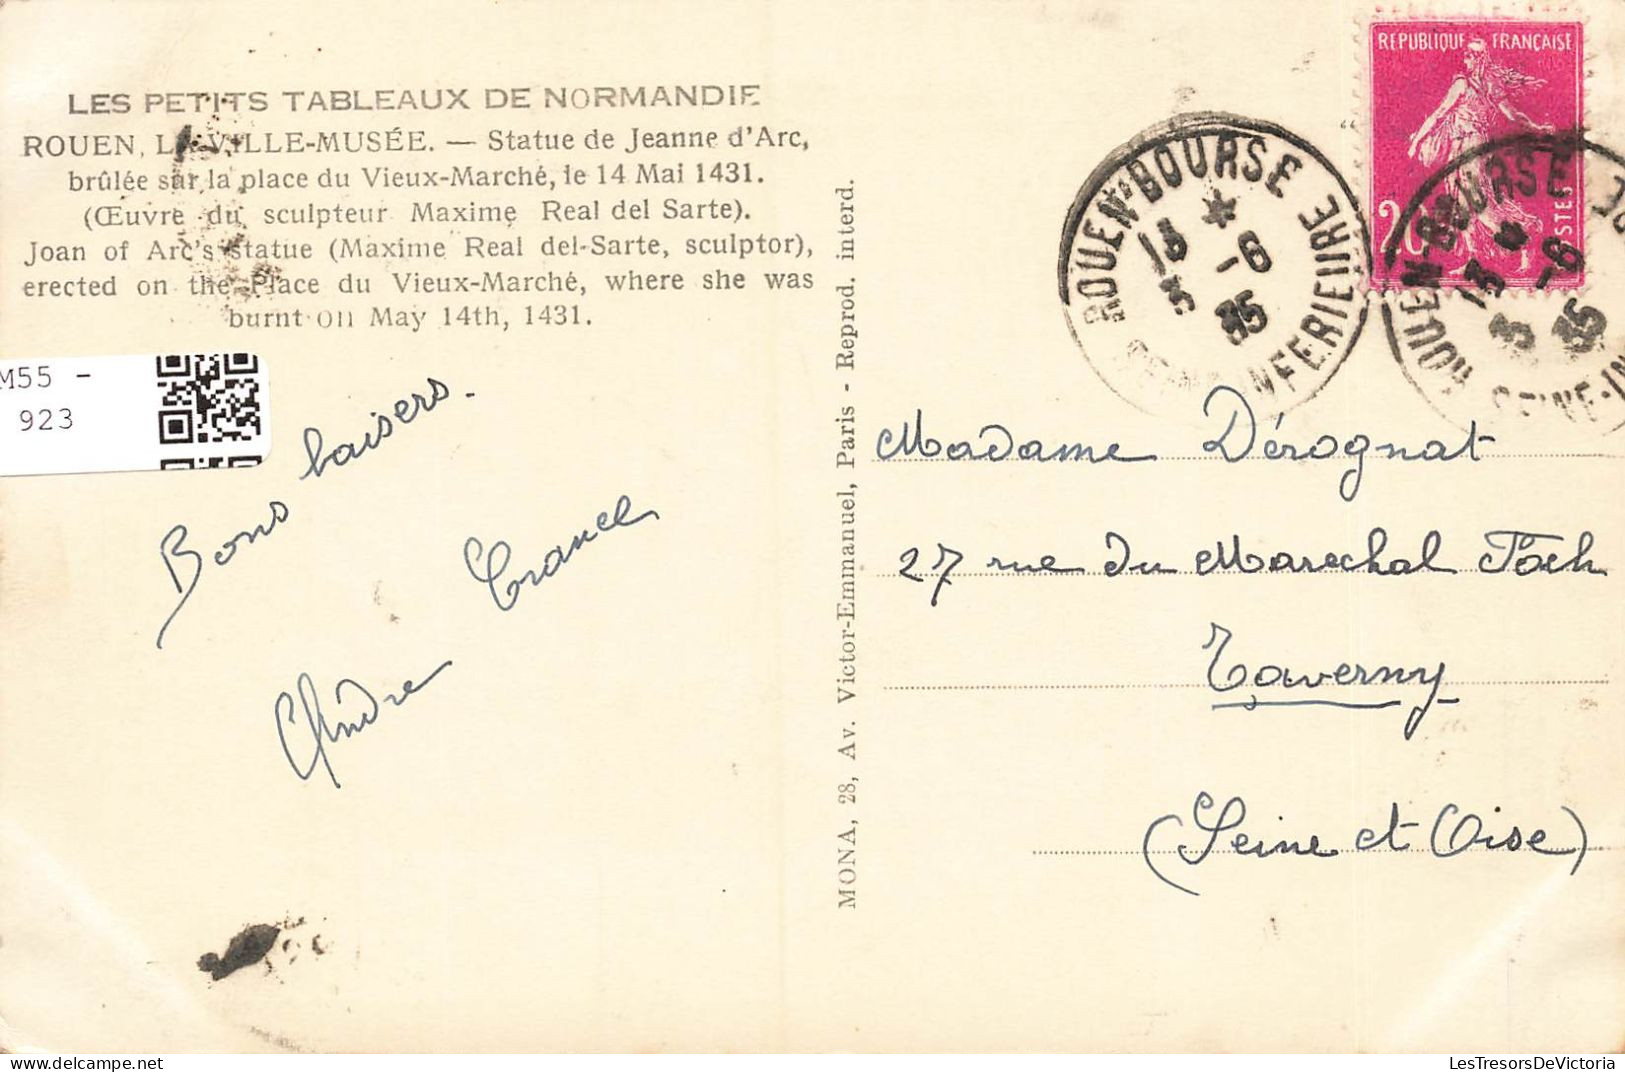 LES PETITS TABLEAUX DE NORMANDIE
ROUEN, LA VILLE-MUSÉE. — Statue de Jeanne d'Arc,
brûlée sur la place du Vieux-Marché, le 14 Mai 1431.
(Œuvre du sculpteur Maxime Real del Sarte).
Joan of Arc's statue (Maxime Real del-Sarte, sculptor),
erected on the Place du Vieux-Marché, where she was
burnt on May 14th, 1431.
M55 -
923
Bons baisers.
André
MONA, 28, Av. Victor-Emmanuel, Paris - Reprod. interd.
REPUBLIQUE FRANÇAISE
POSTES
ROUEN-BOURSE
SEINE-INFERIEURE
-6
35
ROUEN-BOURSE
SEINE-IN
-6
35
Madame Dérognat
27 rue du Marechal Foch
Taverny
(Seine et Oise)
LesTresorsDeVictoria